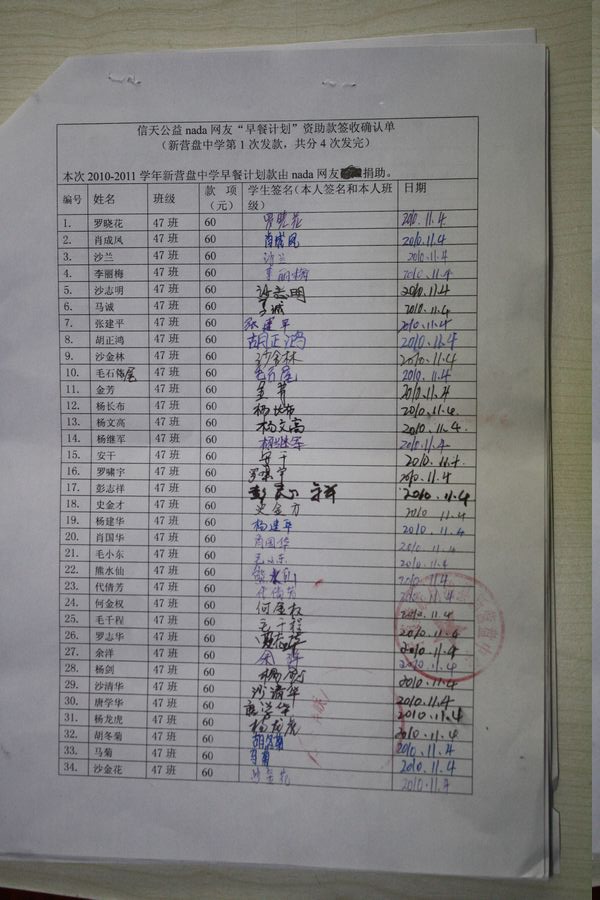 信天公益nada网友“早餐计划”资助款签收确认单
（新营盘中学第1次发款，共分4次发完）
本次2010-2011学年新营盘中学早餐计划款由nada网友 捐助。
编号 姓名 班级 款项（元） 学生签名（本人签名和本人班级） 日期
1. 罗晓花 47班 60 罗晓花 2010.11.4
2. 肖成风 47班 60 肖成风 2010.11.4
3. 沙兰 47班 60 沙兰 2010.11.4
4. 李丽梅 47班 60 李丽梅 2010.11.4
5. 沙志明 47班 60 沙志明 2010.11.4
6. 马诚 47班 60 马诚 2010.11.4
7. 张建平 47班 60 张建平 2010.11.4
8. 胡正鸿 47班 60 胡正鸿 2010.11.4
9. 沙金林 47班 60 沙金林 2010.11.4
10. 毛石尾 47班 60 毛石尾 2010.11.4
11. 金芳 47班 60 金芳 2010.11.4
12. 杨长布 47班 60 杨长布 2010.11.4
13. 杨文高 47班 60 杨文高 2010.11.4.
14. 杨继军 47班 60 杨继军 2010.11.4
15. 安干 47班 60 安干 2010.11.4
16. 罗啸宇 47班 60 罗啸宇 2010.11.4
17. 彭志祥 47班 60 彭志祥 2010.11.4
18. 史金才 47班 60 史金才 2010.11.4
19. 杨建华 47班 60 杨建华 2010.11.4
20. 肖国华 47班 60 肖国华 2010.11.4
21. 毛小东 47班 60 毛小东 2010.11.4
22. 熊水仙 47班 60 熊水仙 2010.11.4
23. 代倩芳 47班 60 代倩芳 2010.11.4
24. 何金权 47班 60 何金权 2010.11.4
25. 毛千程 47班 60 毛千程 2010.11.4
26. 罗志华 47班 60 2010.11.4
27. 余洋 47班 60 余洋 2010.11.4
28. 杨剑 47班 60 杨剑 2010.11.4
29. 沙清华 47班 60 沙清华 2010.11.4
30. 唐学华 47班 60 唐学华 2010.11.4
31. 杨龙虎 47班 60 杨龙虎 2010.11.4
32. 胡冬菊 47班 60 胡冬菊 2010.11.4
33. 马菊 47班 60 马菊 2010.11.4
34. 沙金花 47班 60 沙金花 2010.11.4